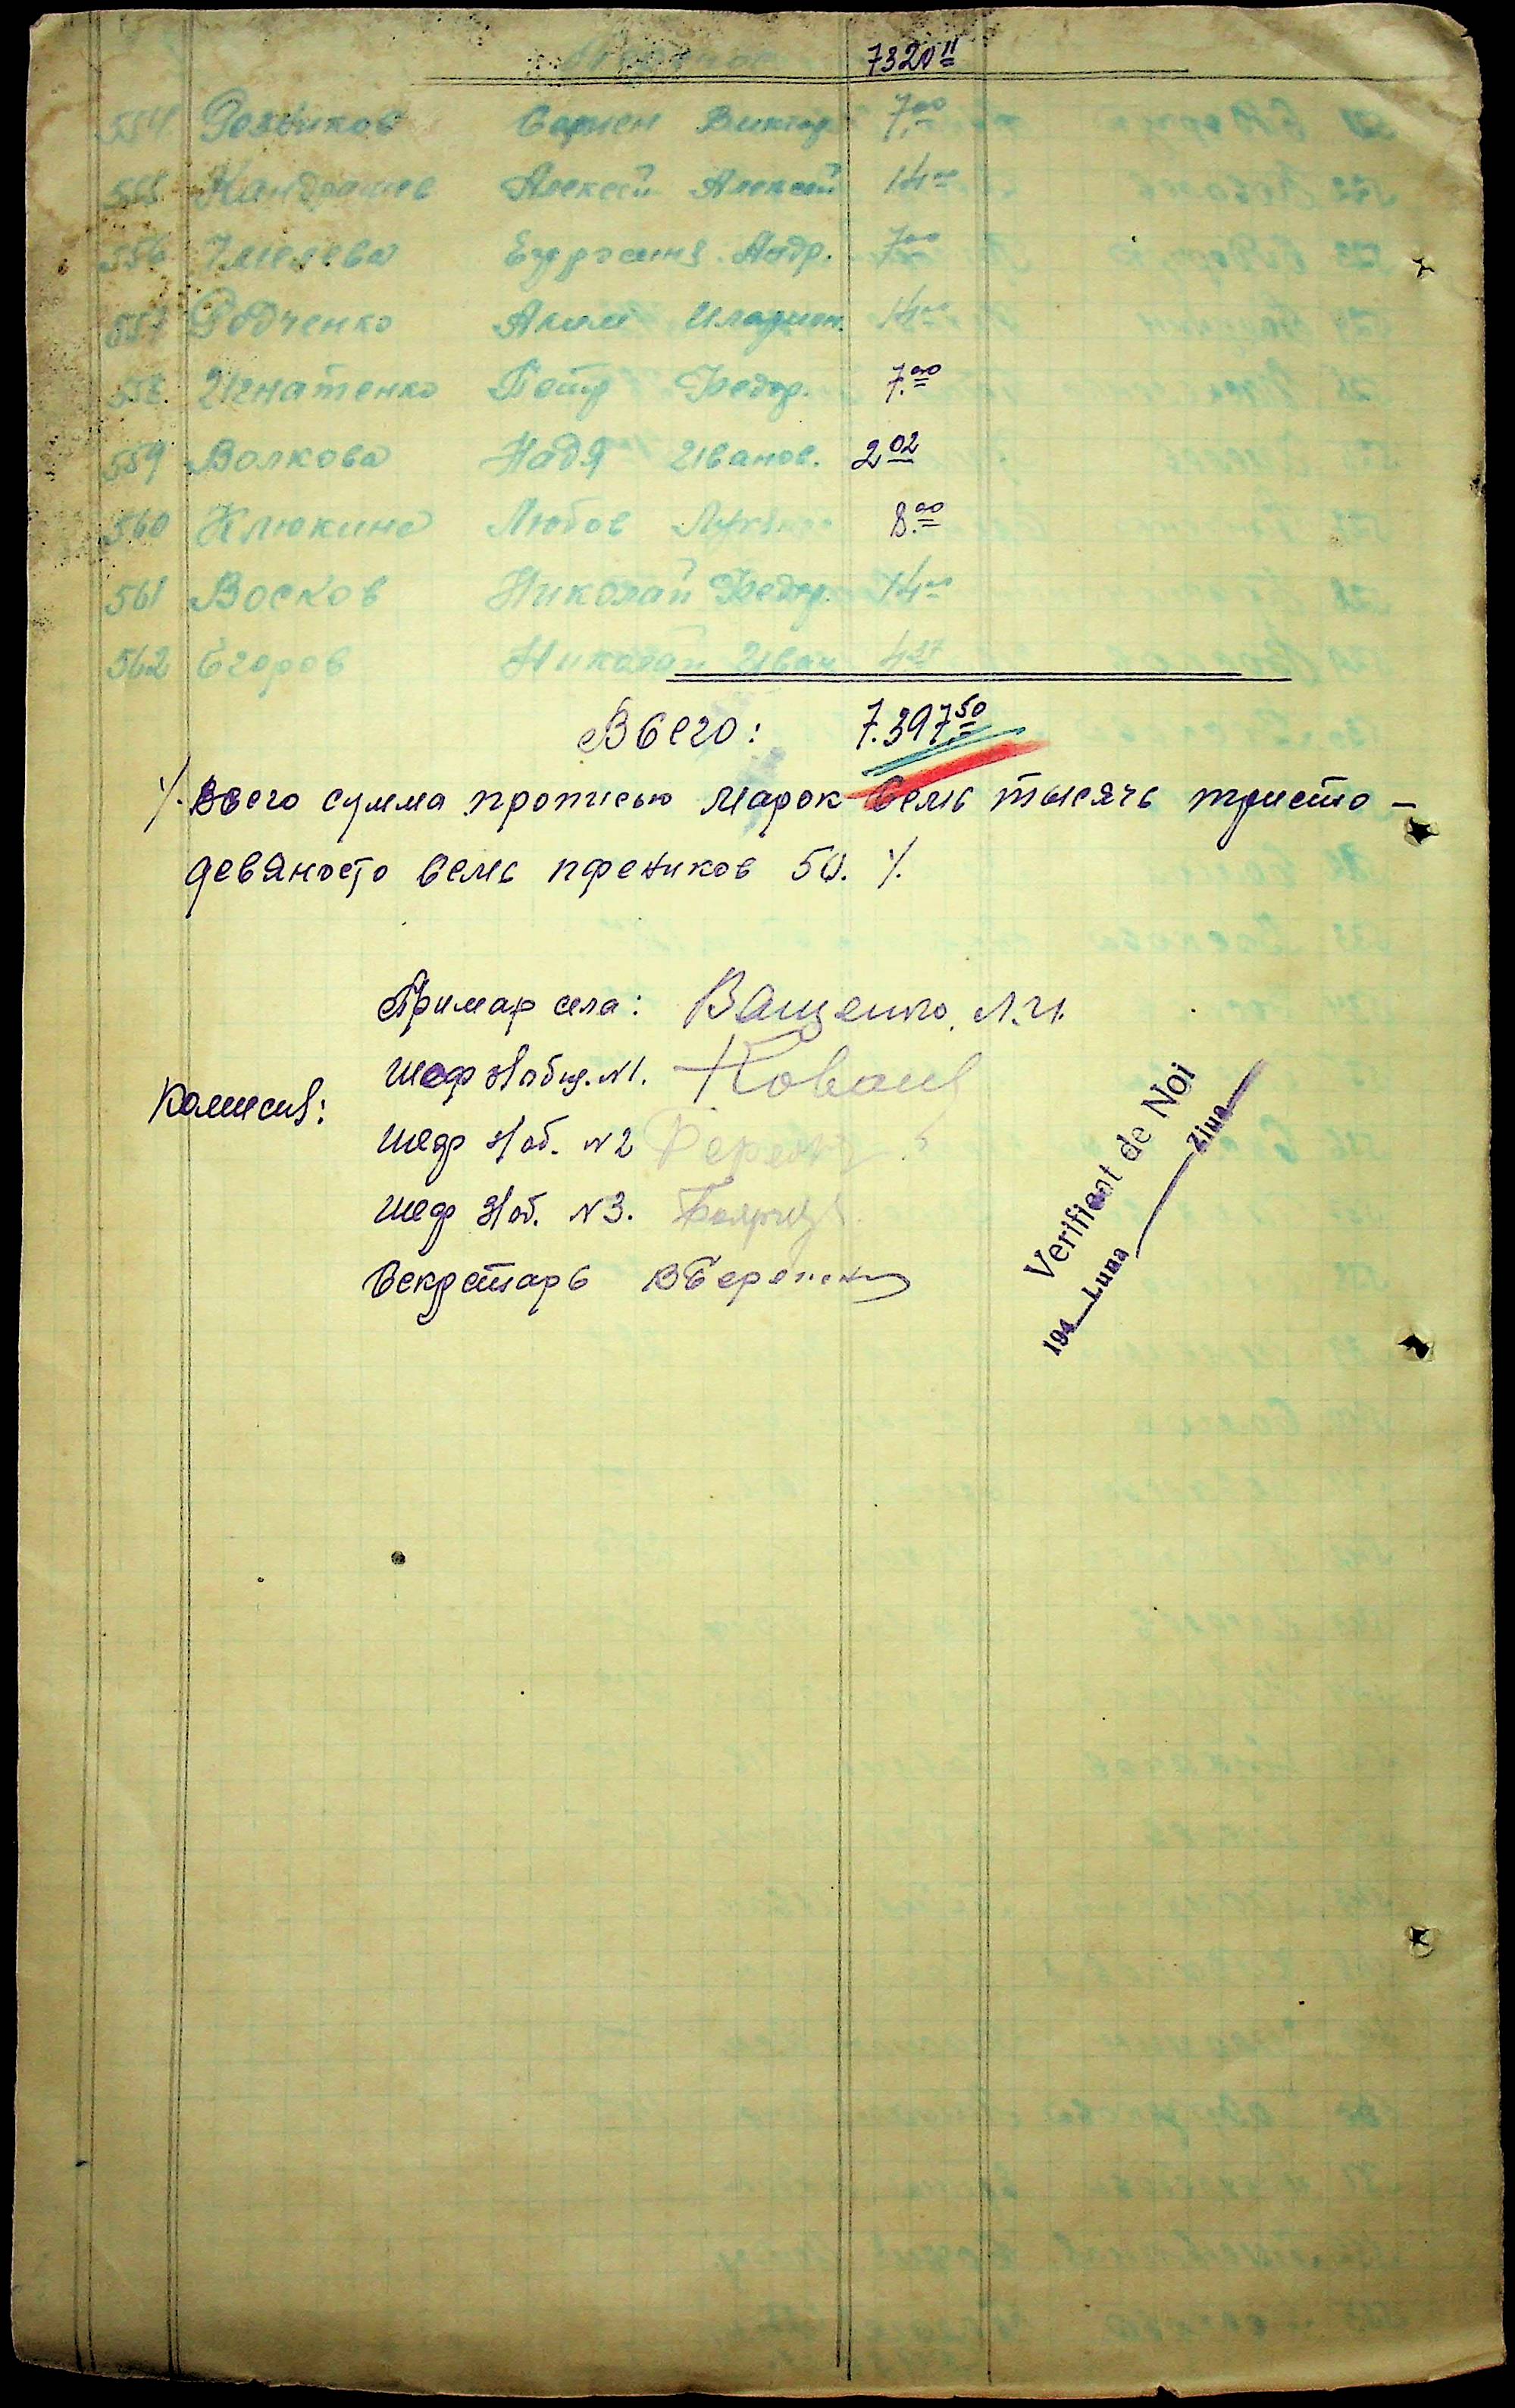 7320 11
554 Резников Семен Виктор 7.00
555 Кандрашев Алексей Алексей 14.00
556 Евдокия Андр. 7.00
557 Радченко Аким Иларион. 14.00
558. Игнатенко Петр Федор. 7.00
559 Волкова Надя Иванов. 2 02
560 Клюкина Любов 8.00
561 Восков Николай Федор. 14.00
562 Егоров Николай Иван 4 27
Всего: 7.397 50
Всего сумма прописью марок семь тысячь тристо -
девяносто семь пфеников 50. /.
Примар села: Ващенко Л.И.
Шеф Набщ. N1.
Комисия:
Шеф Наб. N2
Шеф Наб. N3.
Секретарь
Verificat de Noi
194__Luna____Ziua__